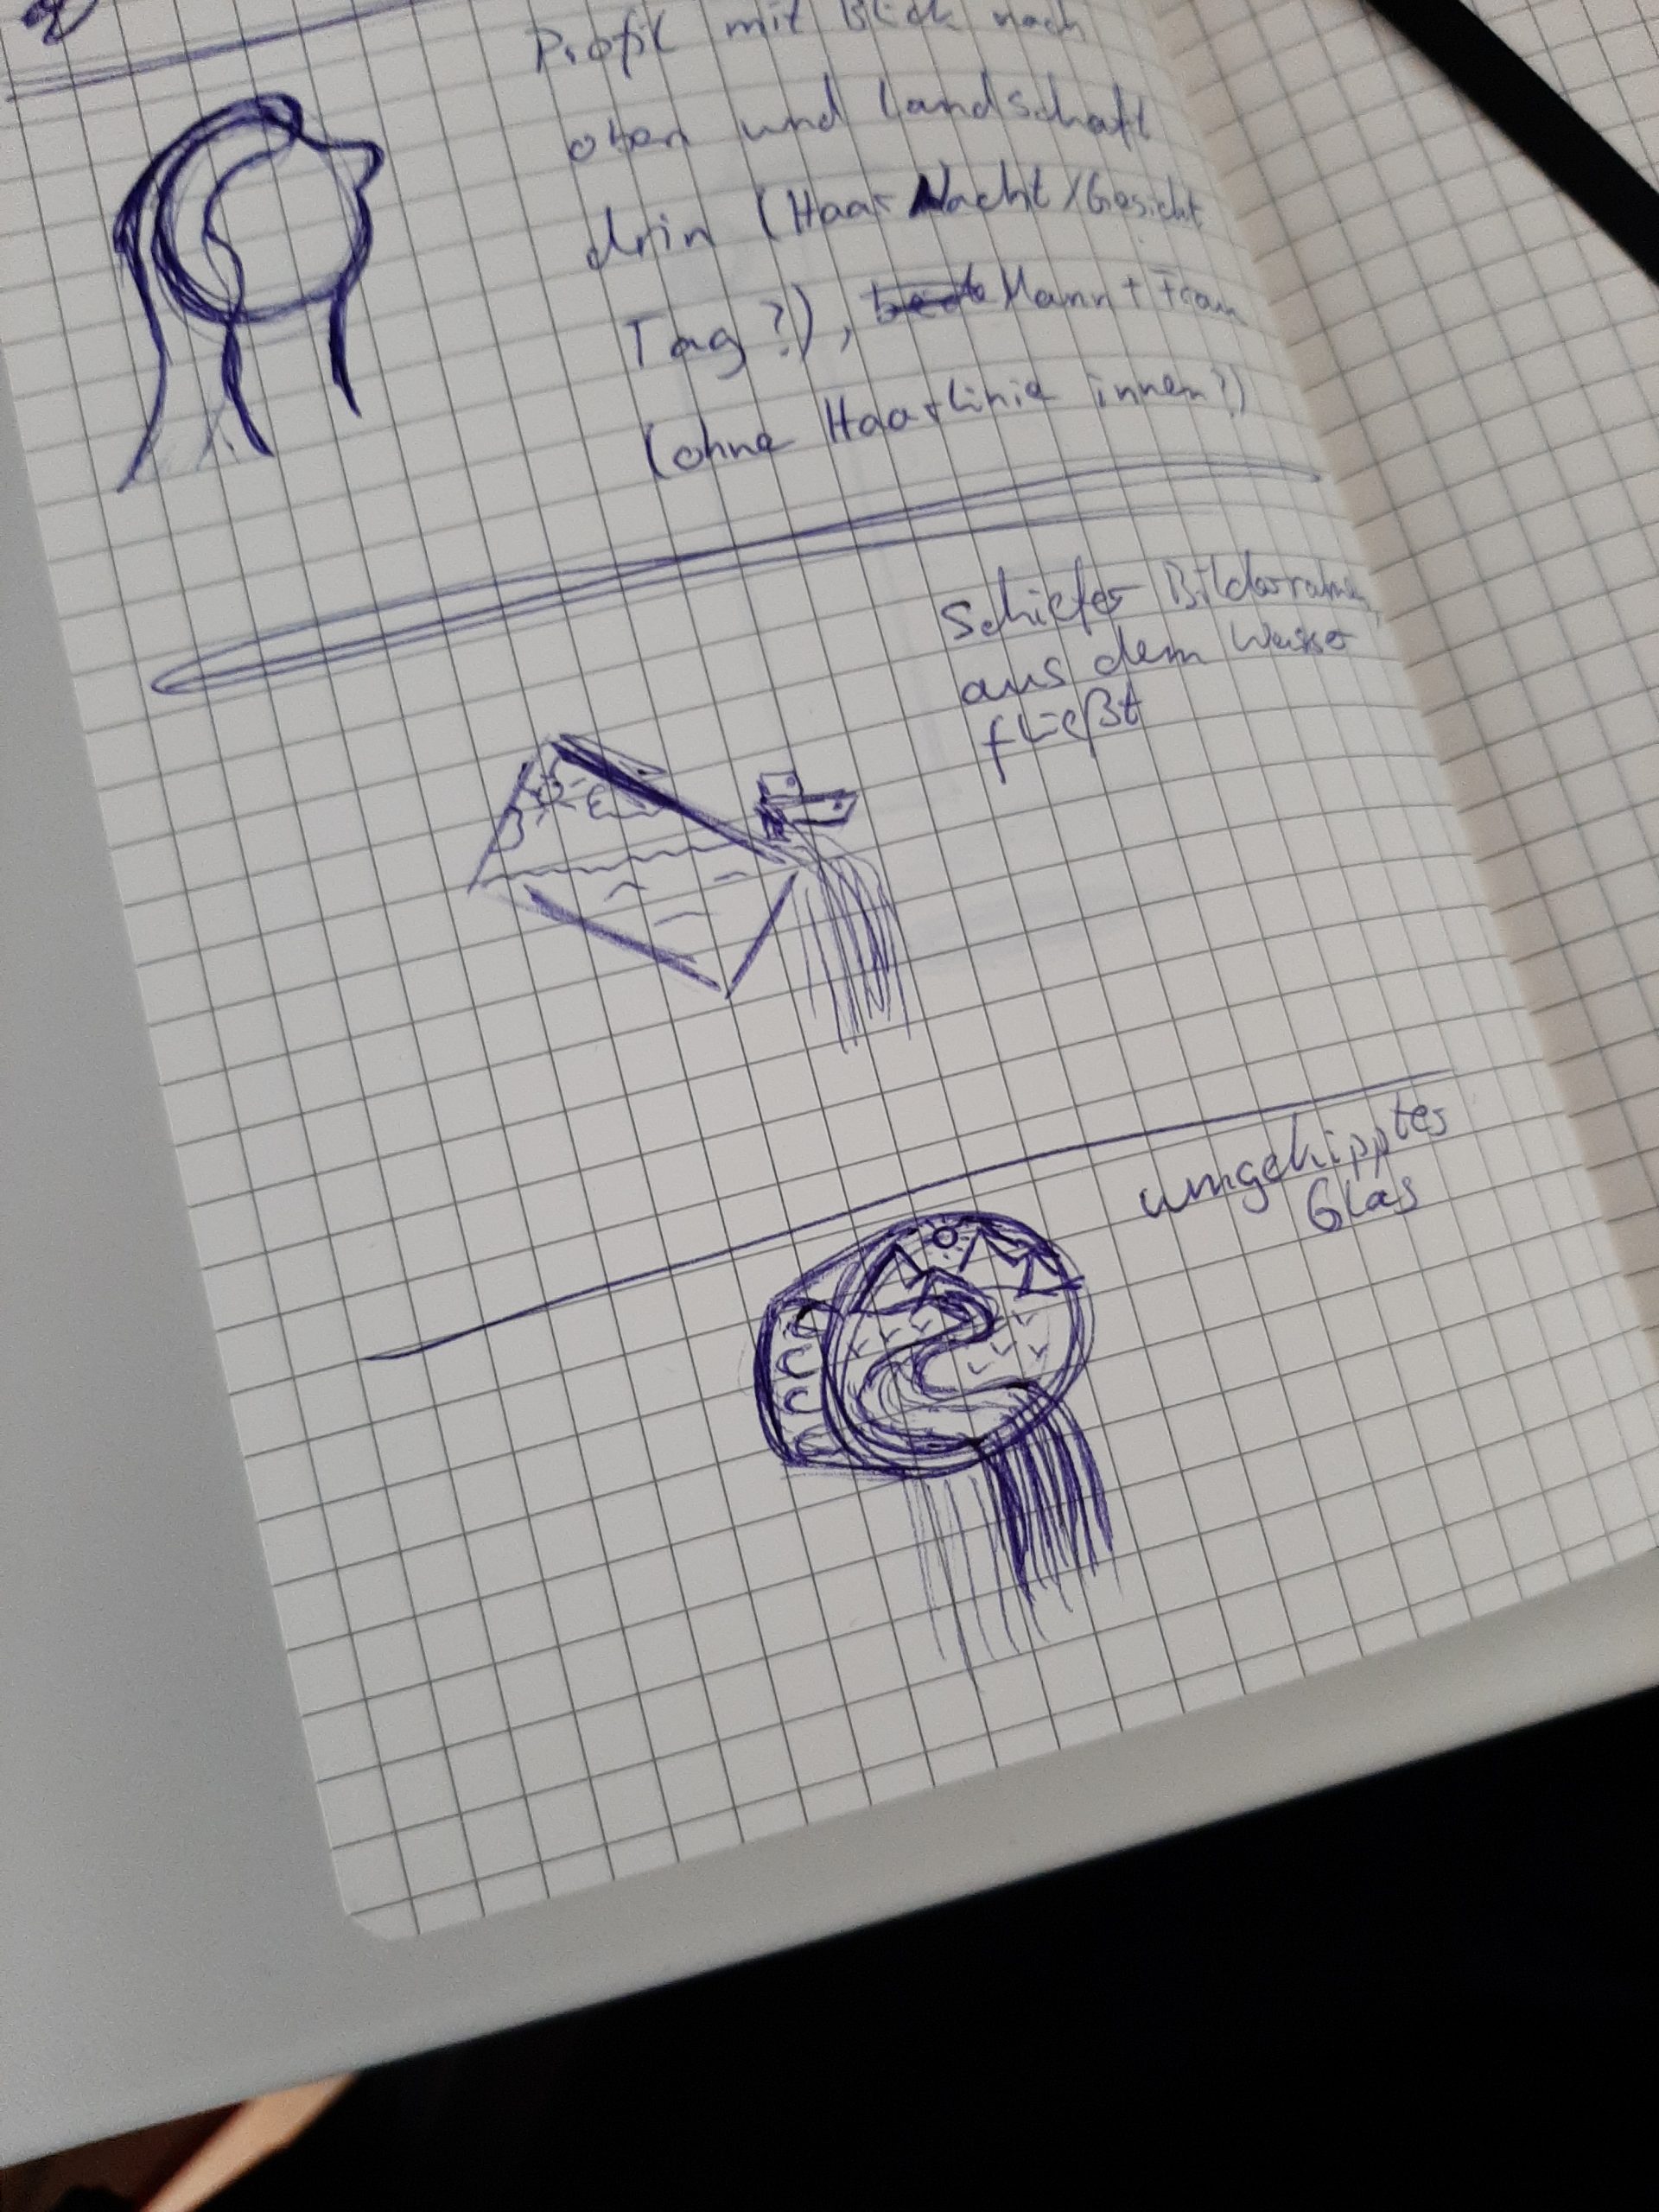 Profil mit Blick nach
oben und Landschaft
drin (Haar Nacht/Gesicht
Tag?), Mann + Frau
(ohne Haarlinie innen?)
Schiefer Bilderrahmen,
aus dem Wasser
fließt
umgekipptes
Glas